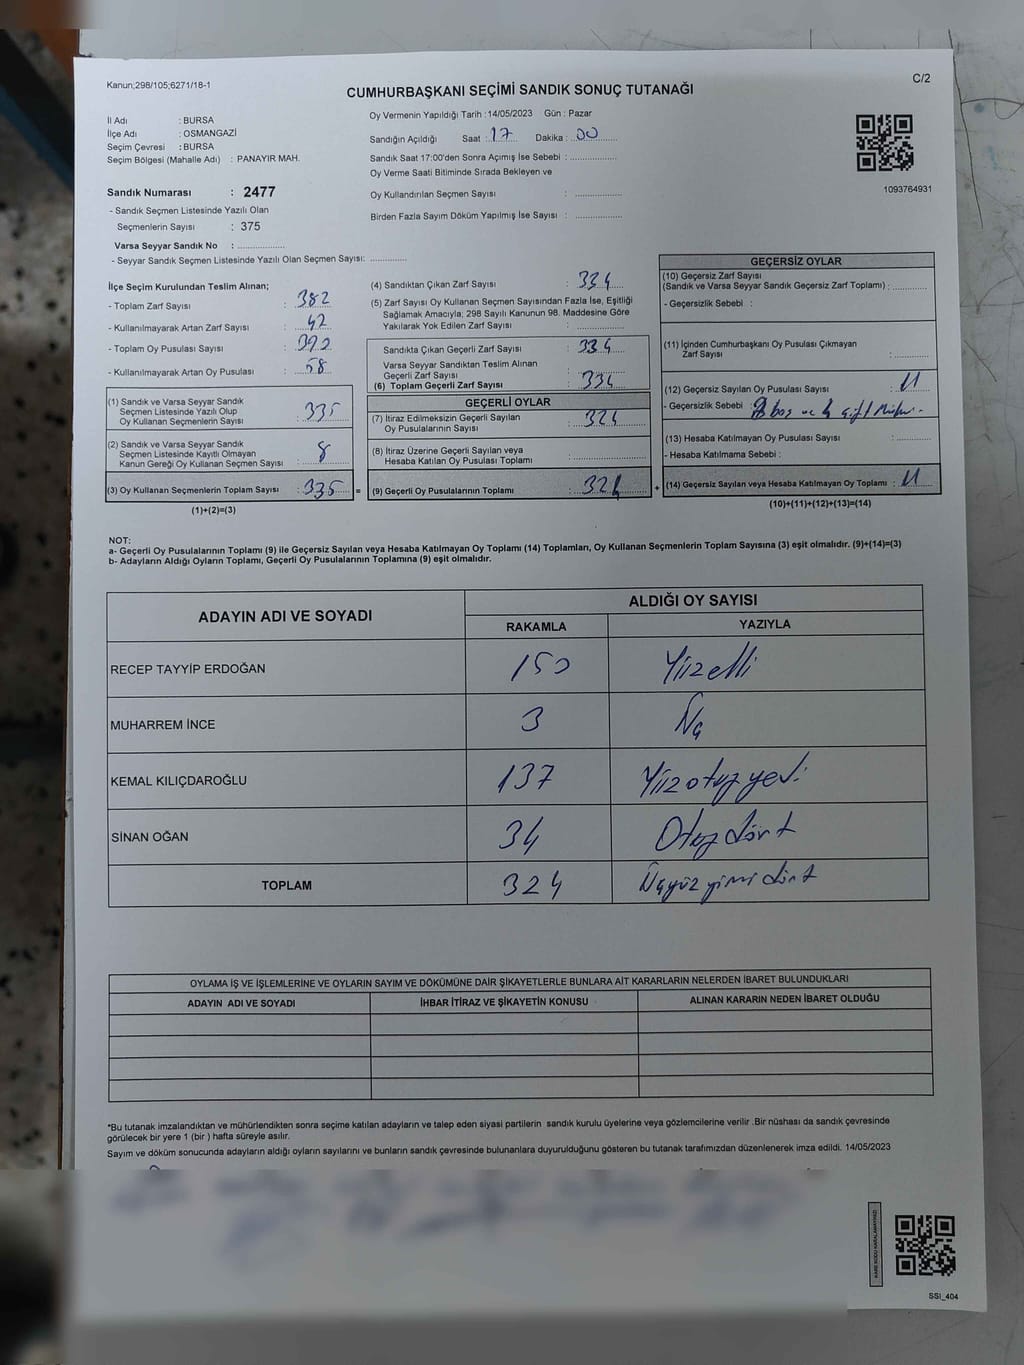 Kanun;298/105;6271/18-1
C/2
CUMHURBAŞKANI SEÇİMİ SANDIK SONUÇ TUTANAĞI
İl Adı : BURSA
İlçe Adı : OSMANGAZİ
Seçim Çevresi : BURSA
Seçim Bölgesi (Mahalle Adı) : PANAYIR MAH.
Sandık Numarası : 2477
- Sandık Seçmen Listesinde Yazılı Olan
Seçmenlerin Sayısı : 375
Varsa Seyyar Sandık No : ..................
- Seyyar Sandık Seçmen Listesinde Yazılı Olan Seçmen Sayısı: .............
Oy Vermenin Yapıldığı Tarih : 14/05/2023 Gün : Pazar
Sandığın Açıldığı Saat : 17 Dakika : 00
Sandık Saat 17:00'den Sonra Açımış İse Sebebi : ..................
Oy Verme Saati Bitiminde Sırada Bekleyen ve
Oy Kullandırılan Seçmen Sayısı : ..................
Birden Fazla Sayım Döküm Yapılmış İse Sayısı : ..................
1093764931
İlçe Seçim Kurulundan Teslim Alınan;
- Toplam Zarf Sayısı : 382
- Kullanılmayarak Artan Zarf Sayısı : 42
- Toplam Oy Pusulası Sayısı : 392
- Kullanılmayarak Artan Oy Pusulası : 58
(1) Sandık ve Varsa Seyyar Sandık
Seçmen Listesinde Yazılı Olup
Oy Kullanan Seçmenlerin Sayısı : 335
(2) Sandık ve Varsa Seyyar Sandık
Seçmen Listesinde Kayıtlı Olmayan
Kanun Gereği Oy Kullanan Seçmen Sayısı : 8
(3) Oy Kullanan Seçmenlerin Toplam Sayısı : 335 =
(1)+(2)=(3)
(4) Sandıktan Çıkan Zarf Sayısı : 334
(5) Zarf Sayısı Oy Kullanan Seçmen Sayısından Fazla İse, Eşitliği
Sağlamak Amacıyla; 298 Sayılı Kanunun 98. Maddesine Göre
Yakılarak Yok Edilen Zarf Sayısı : ..................
Sandıkta Çıkan Geçerli Zarf Sayısı : 334
Varsa Seyyar Sandıktan Teslim Alınan
Geçerli Zarf Sayısı : ..................
(6) Toplam Geçerli Zarf Sayısı : 334
GEÇERLİ OYLAR
(7) İtiraz Edilmeksizin Geçerli Sayılan
Oy Pusulalarının Sayısı : 324
(8) İtiraz Üzerine Geçerli Sayılan veya
Hesaba Katılan Oy Pusulası Toplamı : ..................
(9) Geçerli Oy Pusulalarının Toplamı : 324 +
GEÇERSİZ OYLAR
(10) Geçersiz Zarf Sayısı
(Sandık ve Varsa Seyyar Sandık Geçersiz Zarf Toplamı) : .............
- Geçersizlik Sebebi :
(11) İçinden Cumhurbaşkanı Oy Pusulası Çıkmayan
Zarf Sayısı : .............
(12) Geçersiz Sayılan Oy Pusulası Sayısı : 11
- Geçersizlik Sebebi : boş ve çift
(13) Hesaba Katılmayan Oy Pusulası Sayısı : .............
- Hesaba Katılmama Sebebi :
(14) Geçersiz Sayılan veya Hesaba Katılmayan Oy Toplamı : 11
(10)+(11)+(12)+(13)=(14)
NOT:
a- Geçerli Oy Pusulalarının Toplamı (9) ile Geçersiz Sayılan veya Hesaba Katılmayan Oy Toplamı (14) Toplamları, Oy Kullanan Seçmenlerin Toplam Sayısına (3) eşit olmalıdır. (9)+(14)=(3)
b- Adayların Aldığı Oyların Toplamı, Geçerli Oy Pusulalarının Toplamına (9) eşit olmalıdır.
ADAYIN ADI VE SOYADI ALDIĞI OY SAYISI
RAKAMLA YAZIYLA
RECEP TAYYİP ERDOĞAN 150 Yüzelli
MUHARREM İNCE 3 Üç
KEMAL KILIÇDAROĞLU 137 Yüzotuzyedi
SİNAN OĞAN 34 Otuzdört
TOPLAM 324 Üçyüzyirmidört
OYLAMA İŞ VE İŞLEMLERİNE VE OYLARIN SAYIM VE DÖKÜMÜNE DAİR ŞİKAYETLERLE BUNLARA AİT KARARLARIN NELERDEN İBARET BULUNDUKLARI
ADAYIN ADI VE SOYADI İHBAR İTİRAZ VE ŞİKAYETİN KONUSU ALINAN KARARIN NEDEN İBARET OLDUĞU
*Bu tutanak imzalandıktan ve mühürlendikten sonra seçime katılan adayların ve talep eden siyasi partilerin sandık kurulu üyelerine veya gözlemcilerine verilir .Bir nüshası da sandık çevresinde
görülecek bir yere 1 (bir ) hafta süreyle asılır.
Sayım ve döküm sonucunda adayların aldığı oyların sayılarını ve bunların sandık çevresinde bulunanlara duyurulduğunu gösteren bu tutanak tarafımızdan düzenlenerek imza edildi. 14/05/2023
KARE KODU KARALAMAYINIZ!
SSİ_404